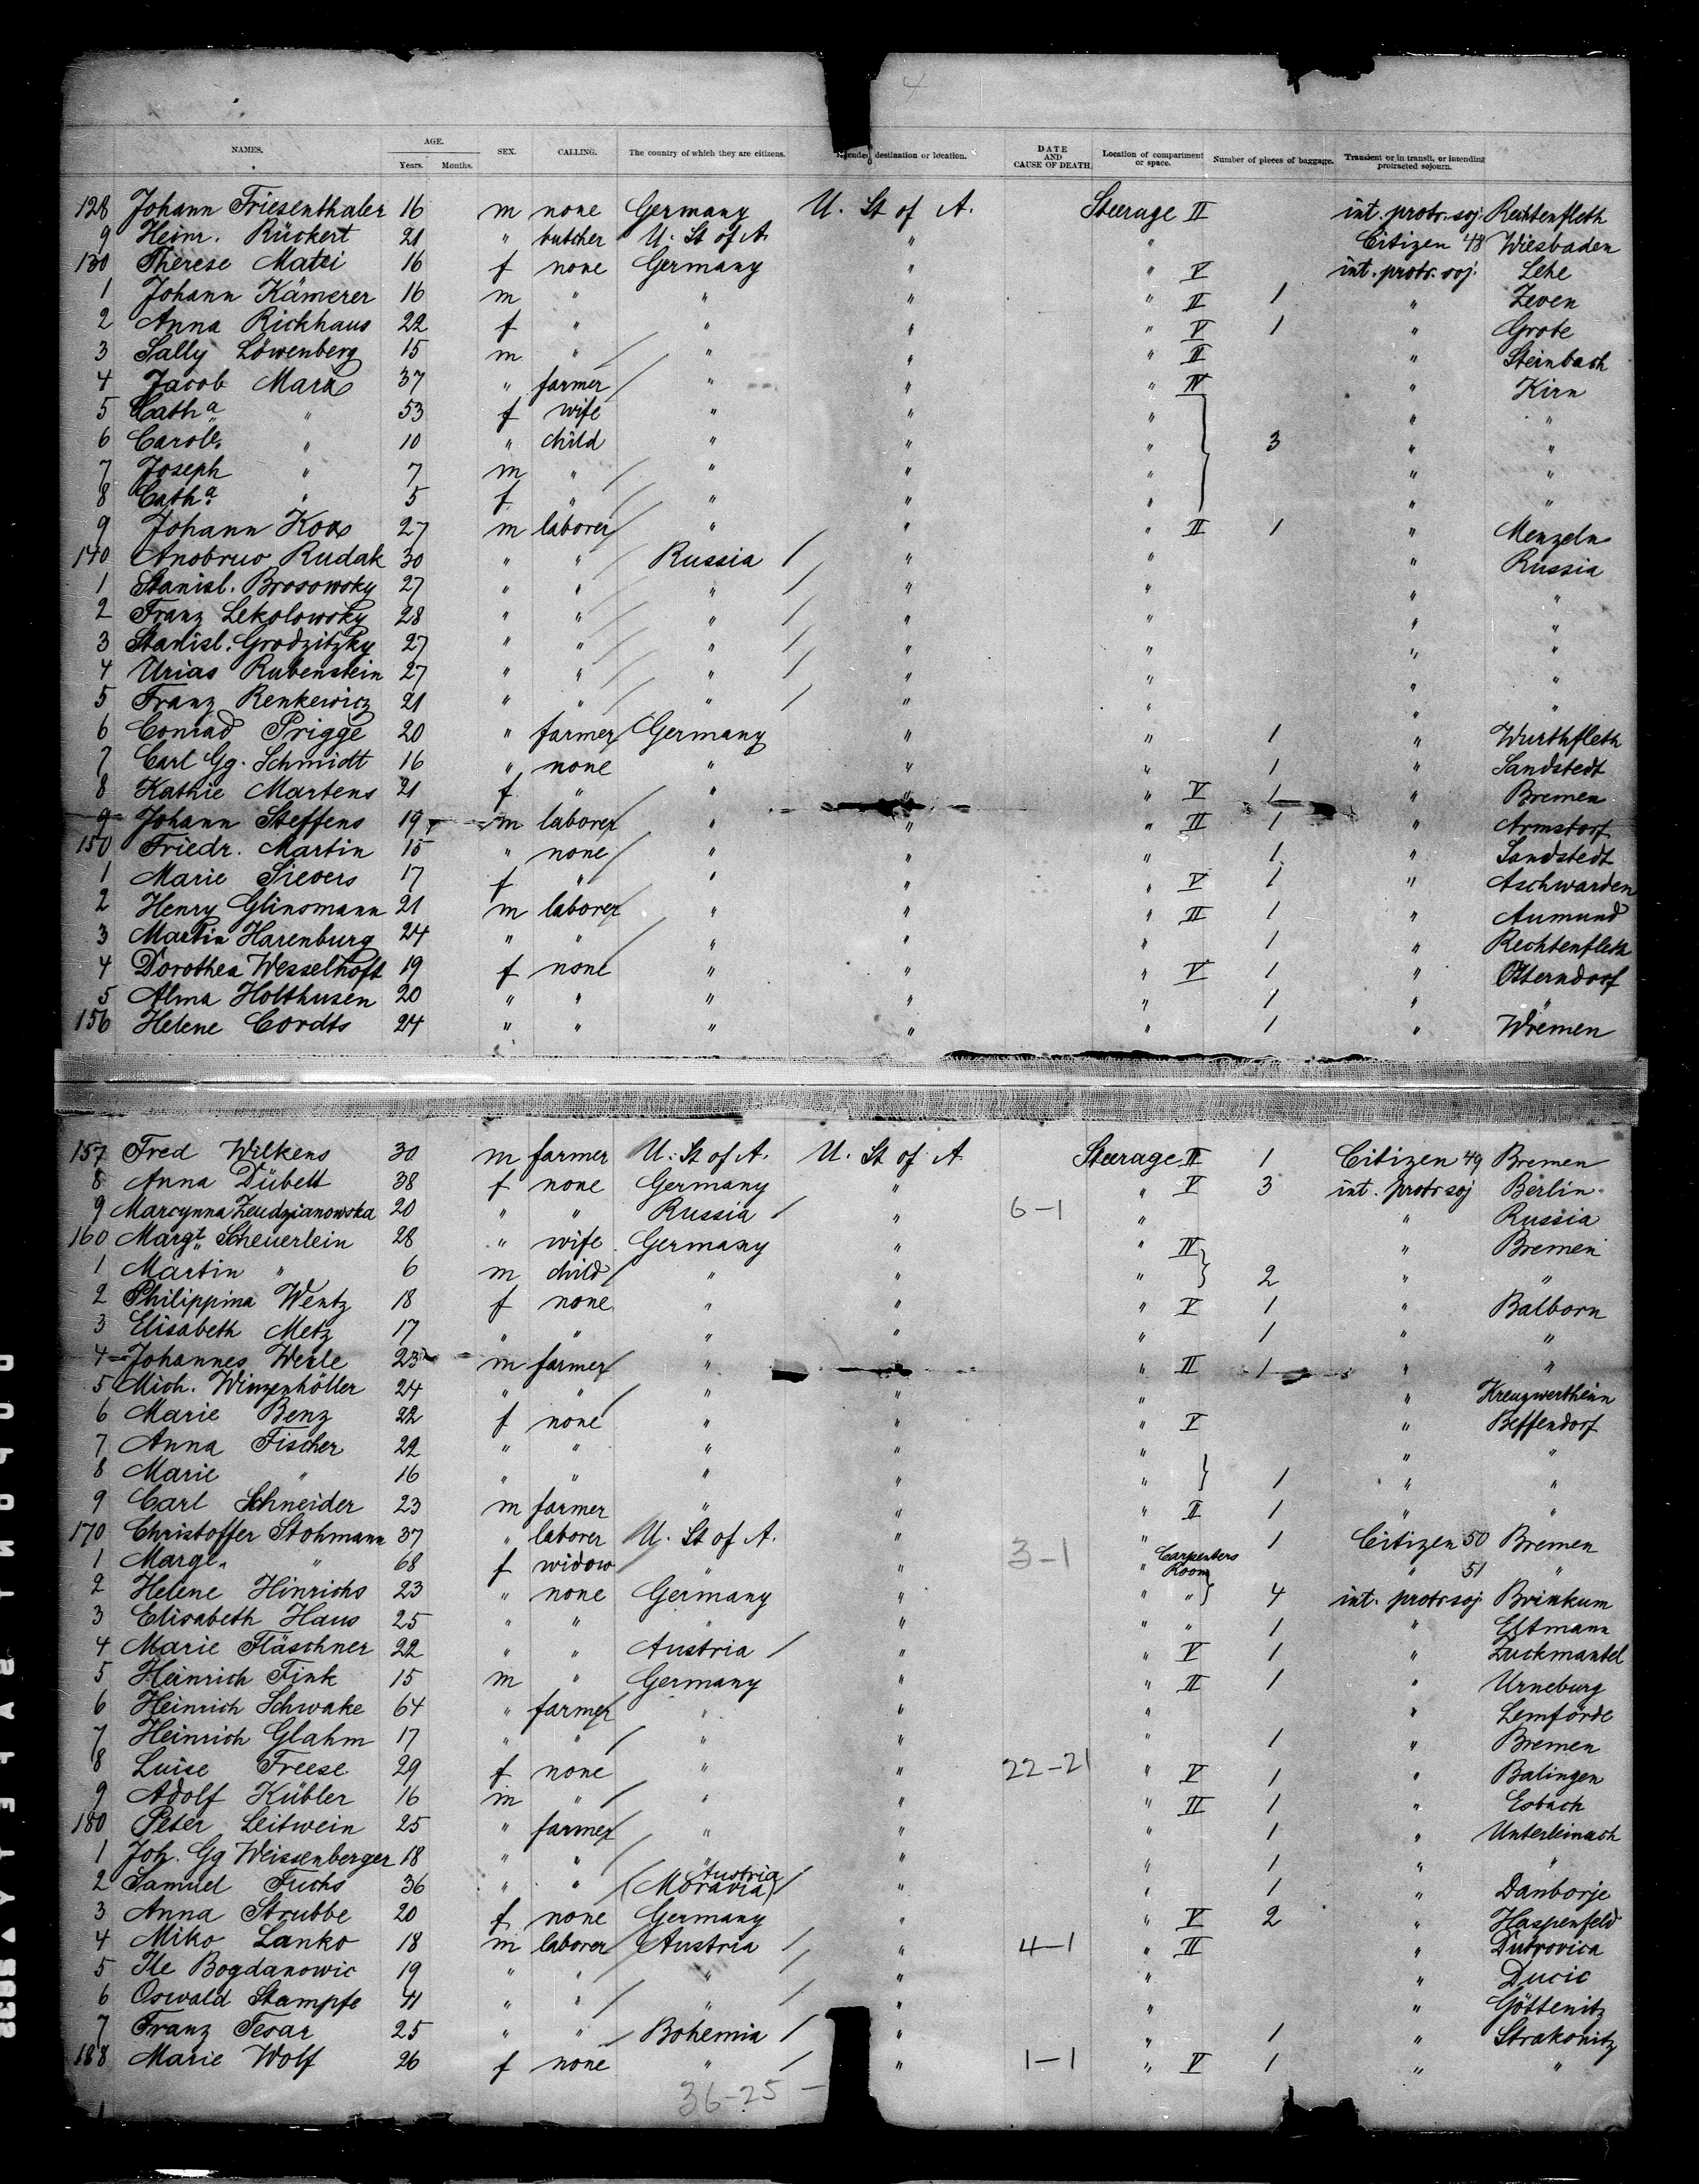 4
NAMES. AGE. Years. Months. SEX. CALLING. The country of which they are citizens. Intended destination or location. DATE AND CAUSE OF DEATH. Location of compartment or space. Number of pieces of baggage. Transient or in transit, or intending protracted sojourn.
128 Johann Friesenthaler 16 m none Germany U. St of A. Steerage II int. protr. soj. Rechtenfleth
9 Heinr. Rückert 21 " butcher U. St of A. " " Citizen 48 Wiesbaden
130 Therese Matzi 16 f none Germany " " V int. protr. soj. Lehe
1 Johann Kämerer 16 m " " " " II 1 " Zeven
2 Anna Richhaus 22 f " " " " V 1 " Grote
3 Sally Löwenberg 15 m " " " " II " Steinbach
4 Jacob Marx 37 " farmer " " " IV " Kirn
5 Catha " 53 f wife " " " " "
6 Carole. " 10 " child " " " 3 " "
7 Joseph " 7 m " " " " " "
8 Catha " 5 f " " " " " "
9 Johann Koos 27 m laborer " " " II 1 " Menzeln
140 Anobruo Rudak 30 " " Russia / " " " Russia
1 Stanisl. Brosowsky 27 " " " / " " " "
2 Franz Lekolowsky 28 " " " / " " " "
3 Stanisl. Grodzitzky 27 " " " / " " " "
4 Urias Rubenstein 27 " " " / " " " "
5 Franz Renkewicz 21 " " " / " " " "
6 Conrad Prigge 20 " farmer Germany " " 1 " Wurthfleth
7 Carl Gg. Schmidt 16 " none " " " 1 " Sandstedt
8 Kathie Martens 21 f " " " " V 1 " Bremen
9 Johann Steffens 19 m laborer " " " II 1 " Armstorf
150 Friedr. Martin 15 " none " " " 1 " Sandstedt
1 Marie Sievers 17 f " " " " V 1 " Aschwarden
2 Henry Glinsmann 21 m laborer " " " II 1 " Aumund
3 Martin Harenburg 24 " " " " " 1 " Rechtenfleth
4 Dorothea Wesselhöft 19 f none " " " V 1 " Otterndorf
5 Alma Holthusen 20 " " " " " 1 " "
156 Helene Cordts 24 " " " " " 1 " Wremen
157 Fred Wilkens 30 m farmer U. St of A. U. St of A Steerage II 1 Citizen 49 Bremen
8 Anna Dübelt 38 f none Germany " " V 3 int. protr soj Berlin
9 Marcynna Zeudzianowska 20 " " Russia / " 6-1 " " Russia
160 Margt. Scheuerlein 28 " wife Germany " " IV " Bremen
1 Martin " 6 m child " " " 2 " "
2 Philippina Wentz 18 f none " " " V 1 " Balborn
3 Elisabeth Metz 17 " " " " " 1 " "
4 Johannes Werle 23 m farmer " " " II 1 " "
5 Mich. Winzenhöller 24 " " " " " " Kreuzwertheim
6 Marie Benz 22 f none " " " V " Beffendorf
7 Anna Fischer 22 " " " " " " "
8 Marie " 16 " " " " " 1 " "
9 Carl Schneider 23 m farmer " " " II 1 " "
170 Christoffer Stohmann 37 " laborer U. St of A. " " 1 Citizen 50 Bremen
1 Marge. " 68 f widow " " 3-1 " Carpenters Room " 51 "
2 Helene Hinrichs 23 " none Germany " " " 4 int. protr soj Brinkum
3 Elisabeth Haus 25 " " " " " " 1 " Eltmann
4 Marie Fläschner 22 " " Austria / " " V 1 " Zuckmantel
5 Heinrich Fink 15 m " Germany " " II 1 " Urneburg
6 Heinrich Schwake 64 " farmer " " " " Lemförde
7 Heinrich Glahm 17 " " " " " 1 " Bremen
8 Luise Freese 29 f none " " 22-21 " V 1 " Balingen
9 Adolf Kübler 16 m " " " " II 1 " Esbach
180 Peter Leitwein 25 " farmer " " " 1 " Unterleinach
1 Joh. Gg Weissenberger 18 " " " " " 1 " "
2 Samuel Fuchs 36 " " Austria (Moravia) / " " 1 " Danborje
3 Anna Strubbe 20 f none Germany " " V 2 " Haspenfeld
4 Miko Lanko 18 m laborer Austria / " 4-1 " II " Dubrovica
5 Ile Bogdanowic 19 " " " / " " " Ducic
6 Oswald Stampfe 41 " " " / " " " Göttenitz
7 Franz Tesar 25 " " Bohemia / " " 1 " Strakonitz
188 Marie Wolf 26 f none " / " 1-1 " V 1 " "
36-25 -